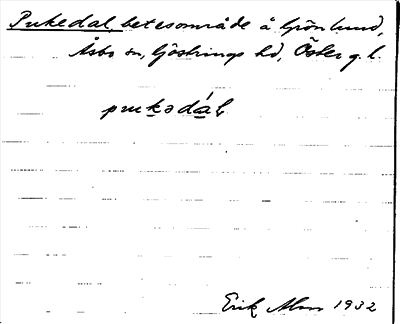 Pukedal, betesområde å Grönlund,
Åsbo sn, Göstrings hd, Österg. l.
pukədál
Erik Alm 1932